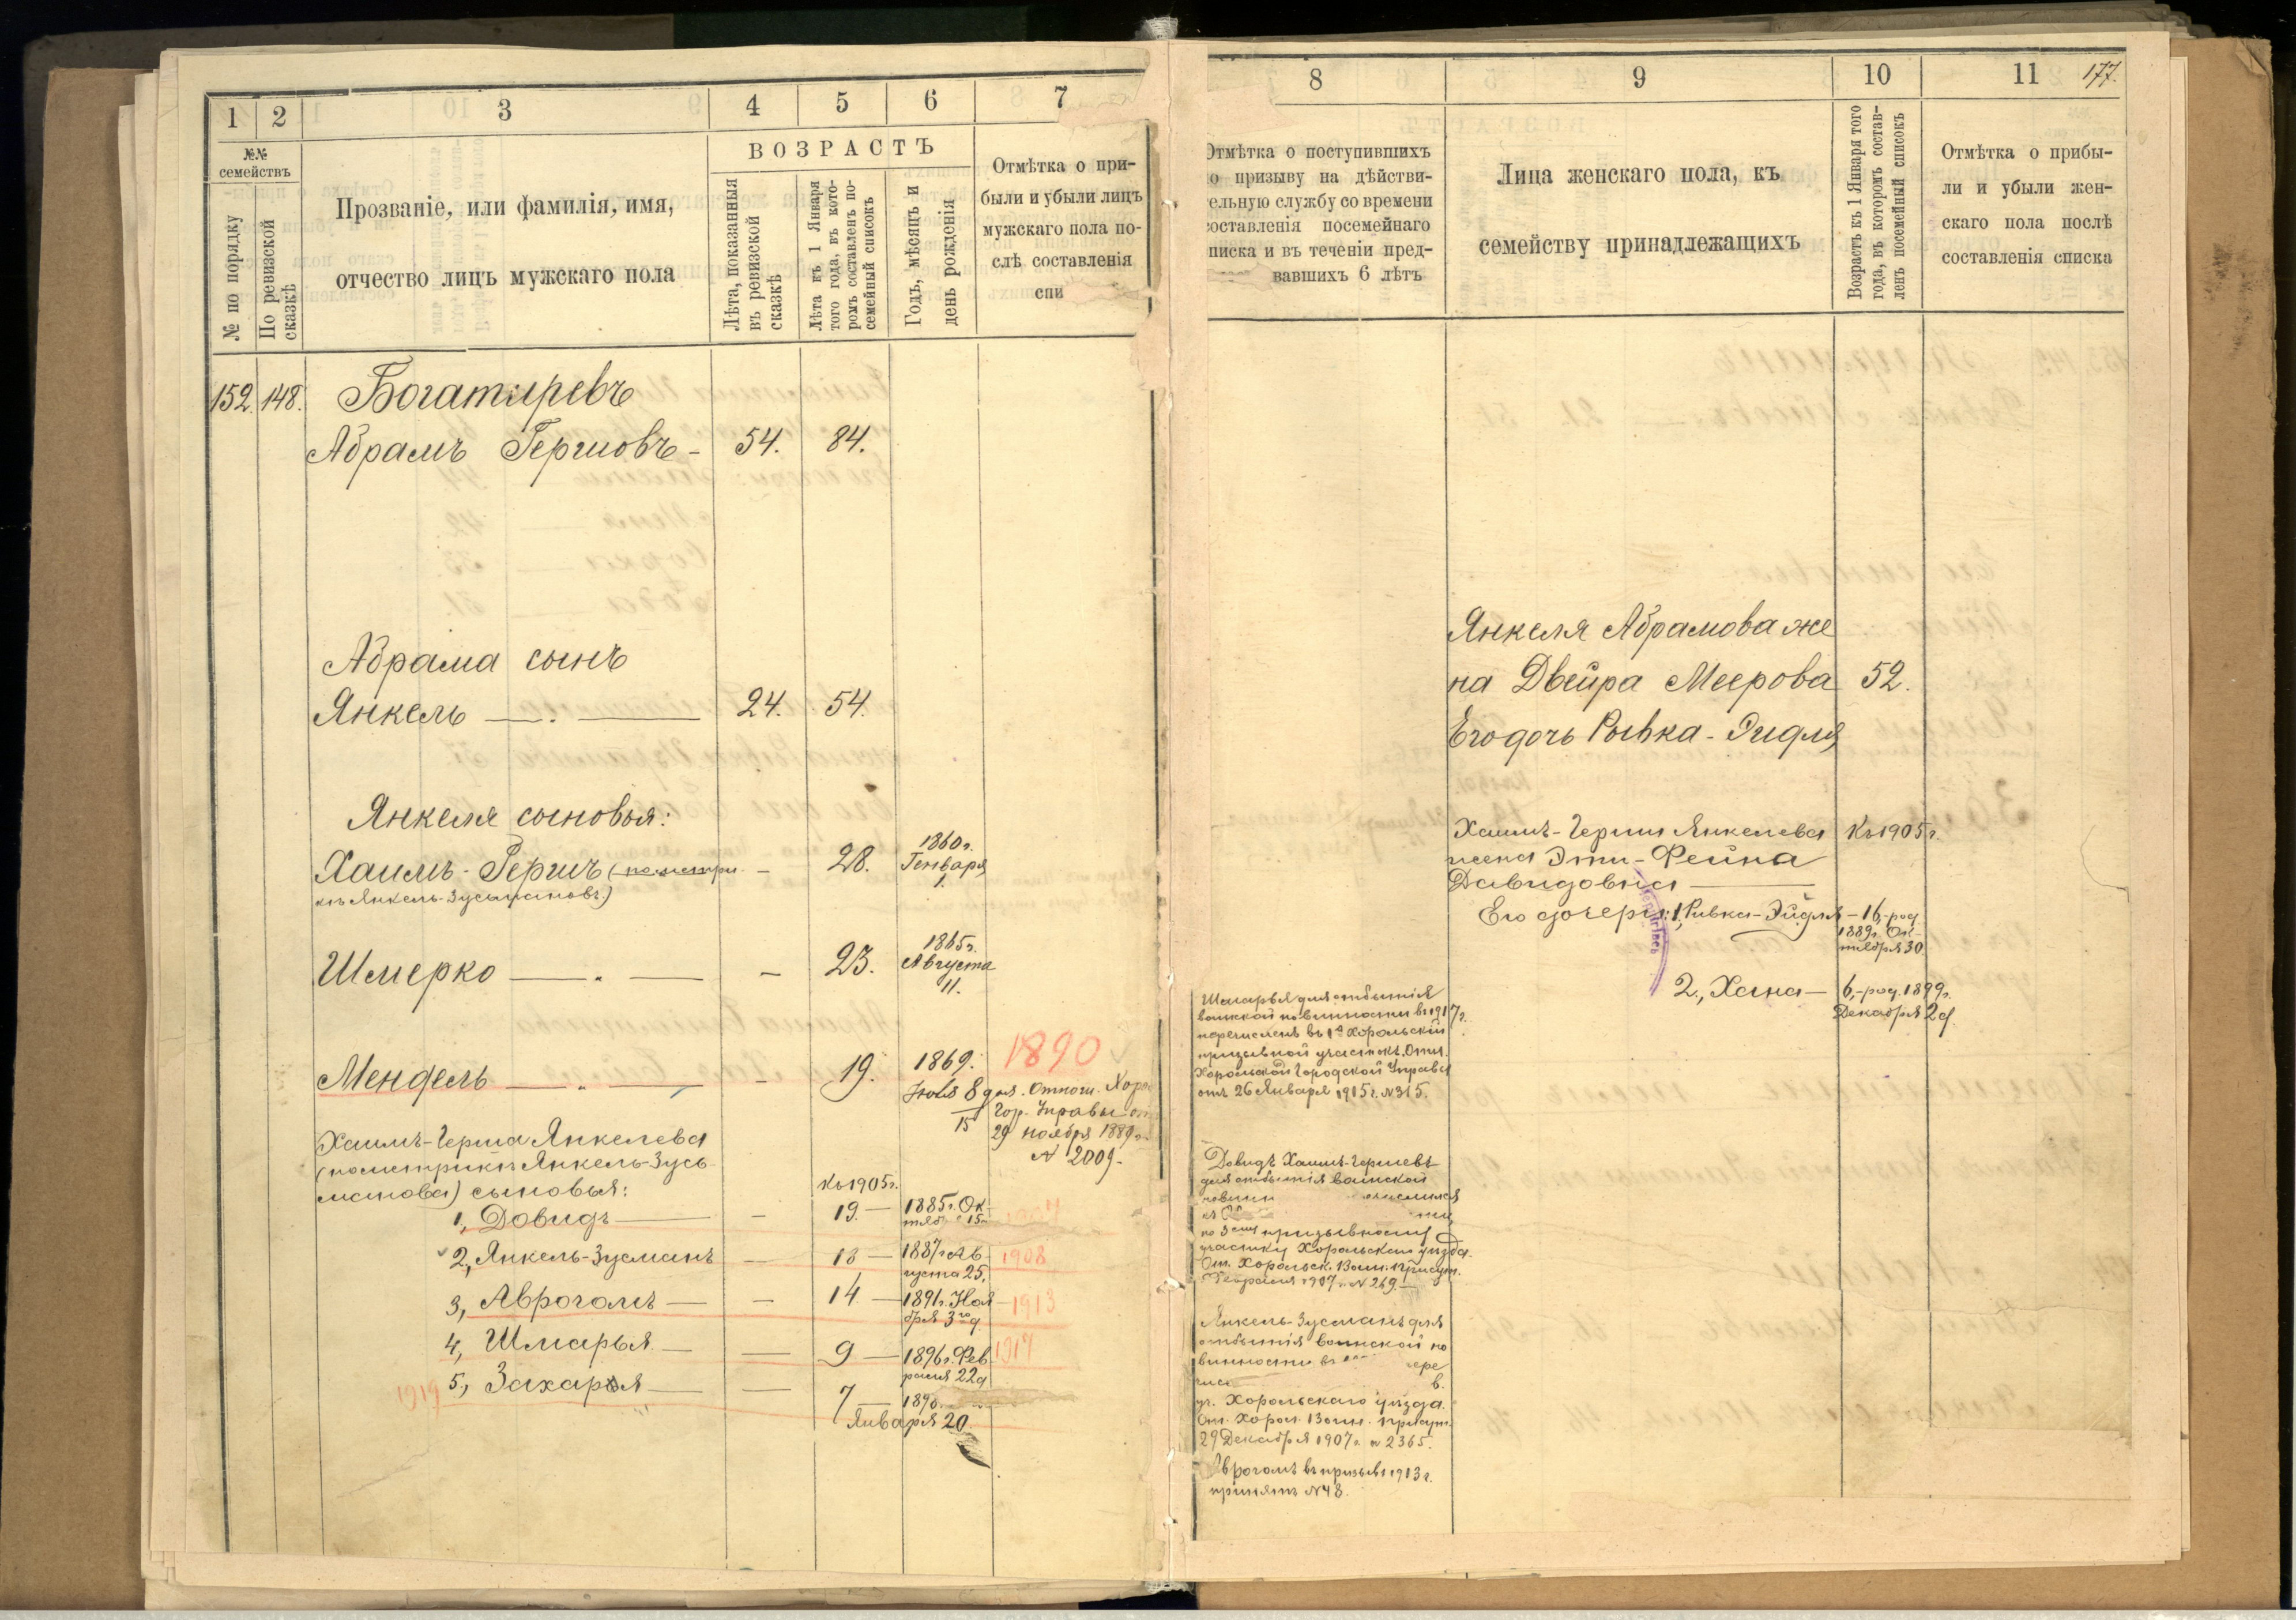 1 2 3 4 5 6 7
№№ семействъ
№ по порядку
По ревизской сказкѣ
Прозваніе, или фамилія, имя,
отчество лицъ мужскаго пола
ВОЗРАСТЪ
Лѣта, показанныя
въ ревизской
сказкѣ
Лѣта къ 1 Января
того года, въ кото-
ромъ составленъ по-
семейный списокъ
Годъ, мѣсяцъ и
день рожденія
Отмѣтка о при-
были и убыли лицъ
мужскаго пола по-
слѣ составленія
спи
152. 148. Богатыревъ
Абрамъ Гершовъ - 54. 84.
Абрама сынъ
Янкель — . — 24. 54.
Янкеля сыновья:
Хаимъ-Гершъ (по метри - 28. 1860г. Генваря 1.
къ Янкель-Зусмановъ)
Шмерко — „ — - 23. 1865г. Августа 11.
Мендель — „ — - 19. 1869. 1890
Июля 8 дня. Отнош. Хорол
15 Гор. Управы от
29 ноября 1889 г.
№ 2009.
Хаимъ-Герша Янкелева
(по метрикѣ Янкель-Зусь-
манова) сыновья:
Къ 1905г.
1, Довидъ — - 19. — 1885г. Ок-
15
2, Янкель-Зусманъ — 18 — 1887г. Ав- 1908
густа 25.
3, Аврогамъ — - 14 — 1891г. Ноя- 1913
бря 3го д.
4, Шмарья — — 9 — 1896г. Фев- 1917
раля 22д
1919 5, Захарья — — 7 — 189
Января 20
8 9 10 11 177.
Отмѣтка о поступившихъ
о призыву на дѣйстви-
ельную службу со времени
составленія посемейнаго
писка и въ теченіи пред-
вавшихъ 6 лѣтъ
Лица женскаго пола, къ
семейству принадлежащихъ
Возрастъ къ 1 Января того
года, въ которомъ состав-
ленъ посемейный списокъ
Отмѣтка о прибы-
ли и убыли жен-
скаго пола послѣ
составленія списка
Янкеля Абрамова же
на Двейра Меерова 52.
Его дочь Рывка-Эидля
Хаимъ-Герши Янкелева Къ 1905г.
жена Эти-Фейна
Давидовна —
Его дочери: 1, Ривка-Эйдля — 16, род.
1889г. Ок-
тября 30
2., Хана — 6, род. 1899г.
Декабря 2 д.
Шмарья для отбытія
воинской повинности въ 1917г.
перечисленъ въ 1й Хорольскій
призывной участокъ. Отн.
Хорольской Городской Управы
отъ 26 Января 1915г. №315.
Довидъ Хаимъ-Гершевъ
для отбытія воинской
повин числился
по 3ему призывному
участку Хорольскаго уѣзда.
От. Хорольск. Воин. Присут.
Февраля 1907 г. № 269. —
Янкель-Зусманъ для
отбытія воинской по
винности въ ере
числ в.
уч. Хорольскаго уѣзда.
От. Хорол. Воин. Присут.
29 Декабря 1907г. № 2365.
Аврогамъ въ призывъ 1913г.
принятъ №48.